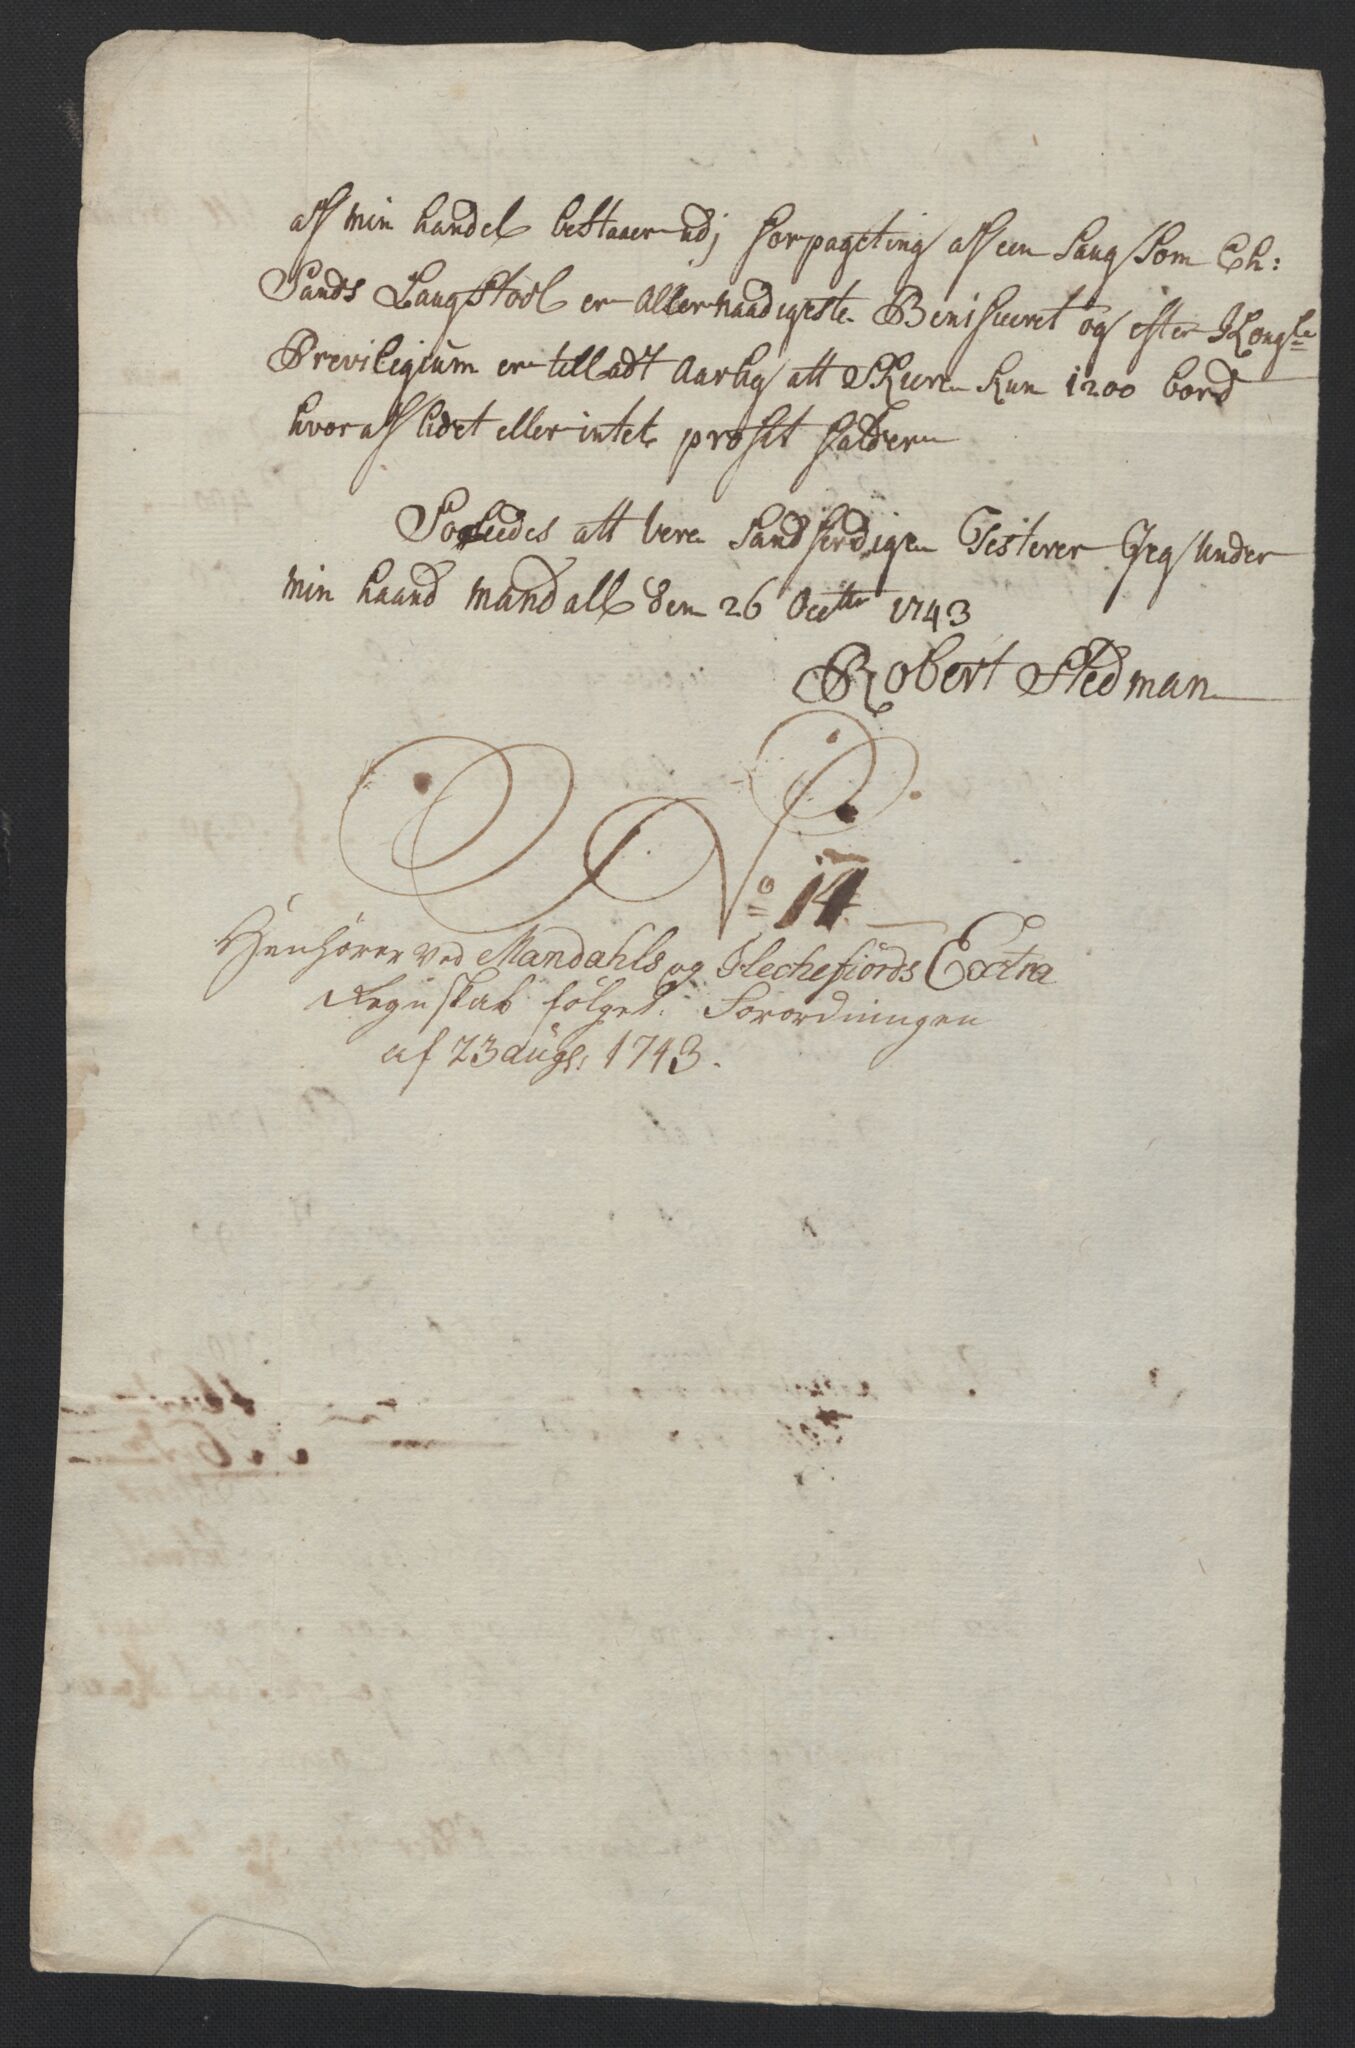 aff min handel bestaaer udj forpagcting aff een Saug Som Ch:
Sands Laug Stoel er Allernaadigste Benificeret og efter Kongle
Previlegium er tilladt Aarlig att Skiere kun 1200 bord
hvoraff lidet eller intet profit falder
Saaledes att vere Sandferdigen Testerer Jeg under
min haand Mandall den 26 Octtr 1743
Robert Stedman
No 14
Henhører ved Mandahls og Flechefiords Extra
Regnskab følget. Forordningen
af 23 augs: 1743.